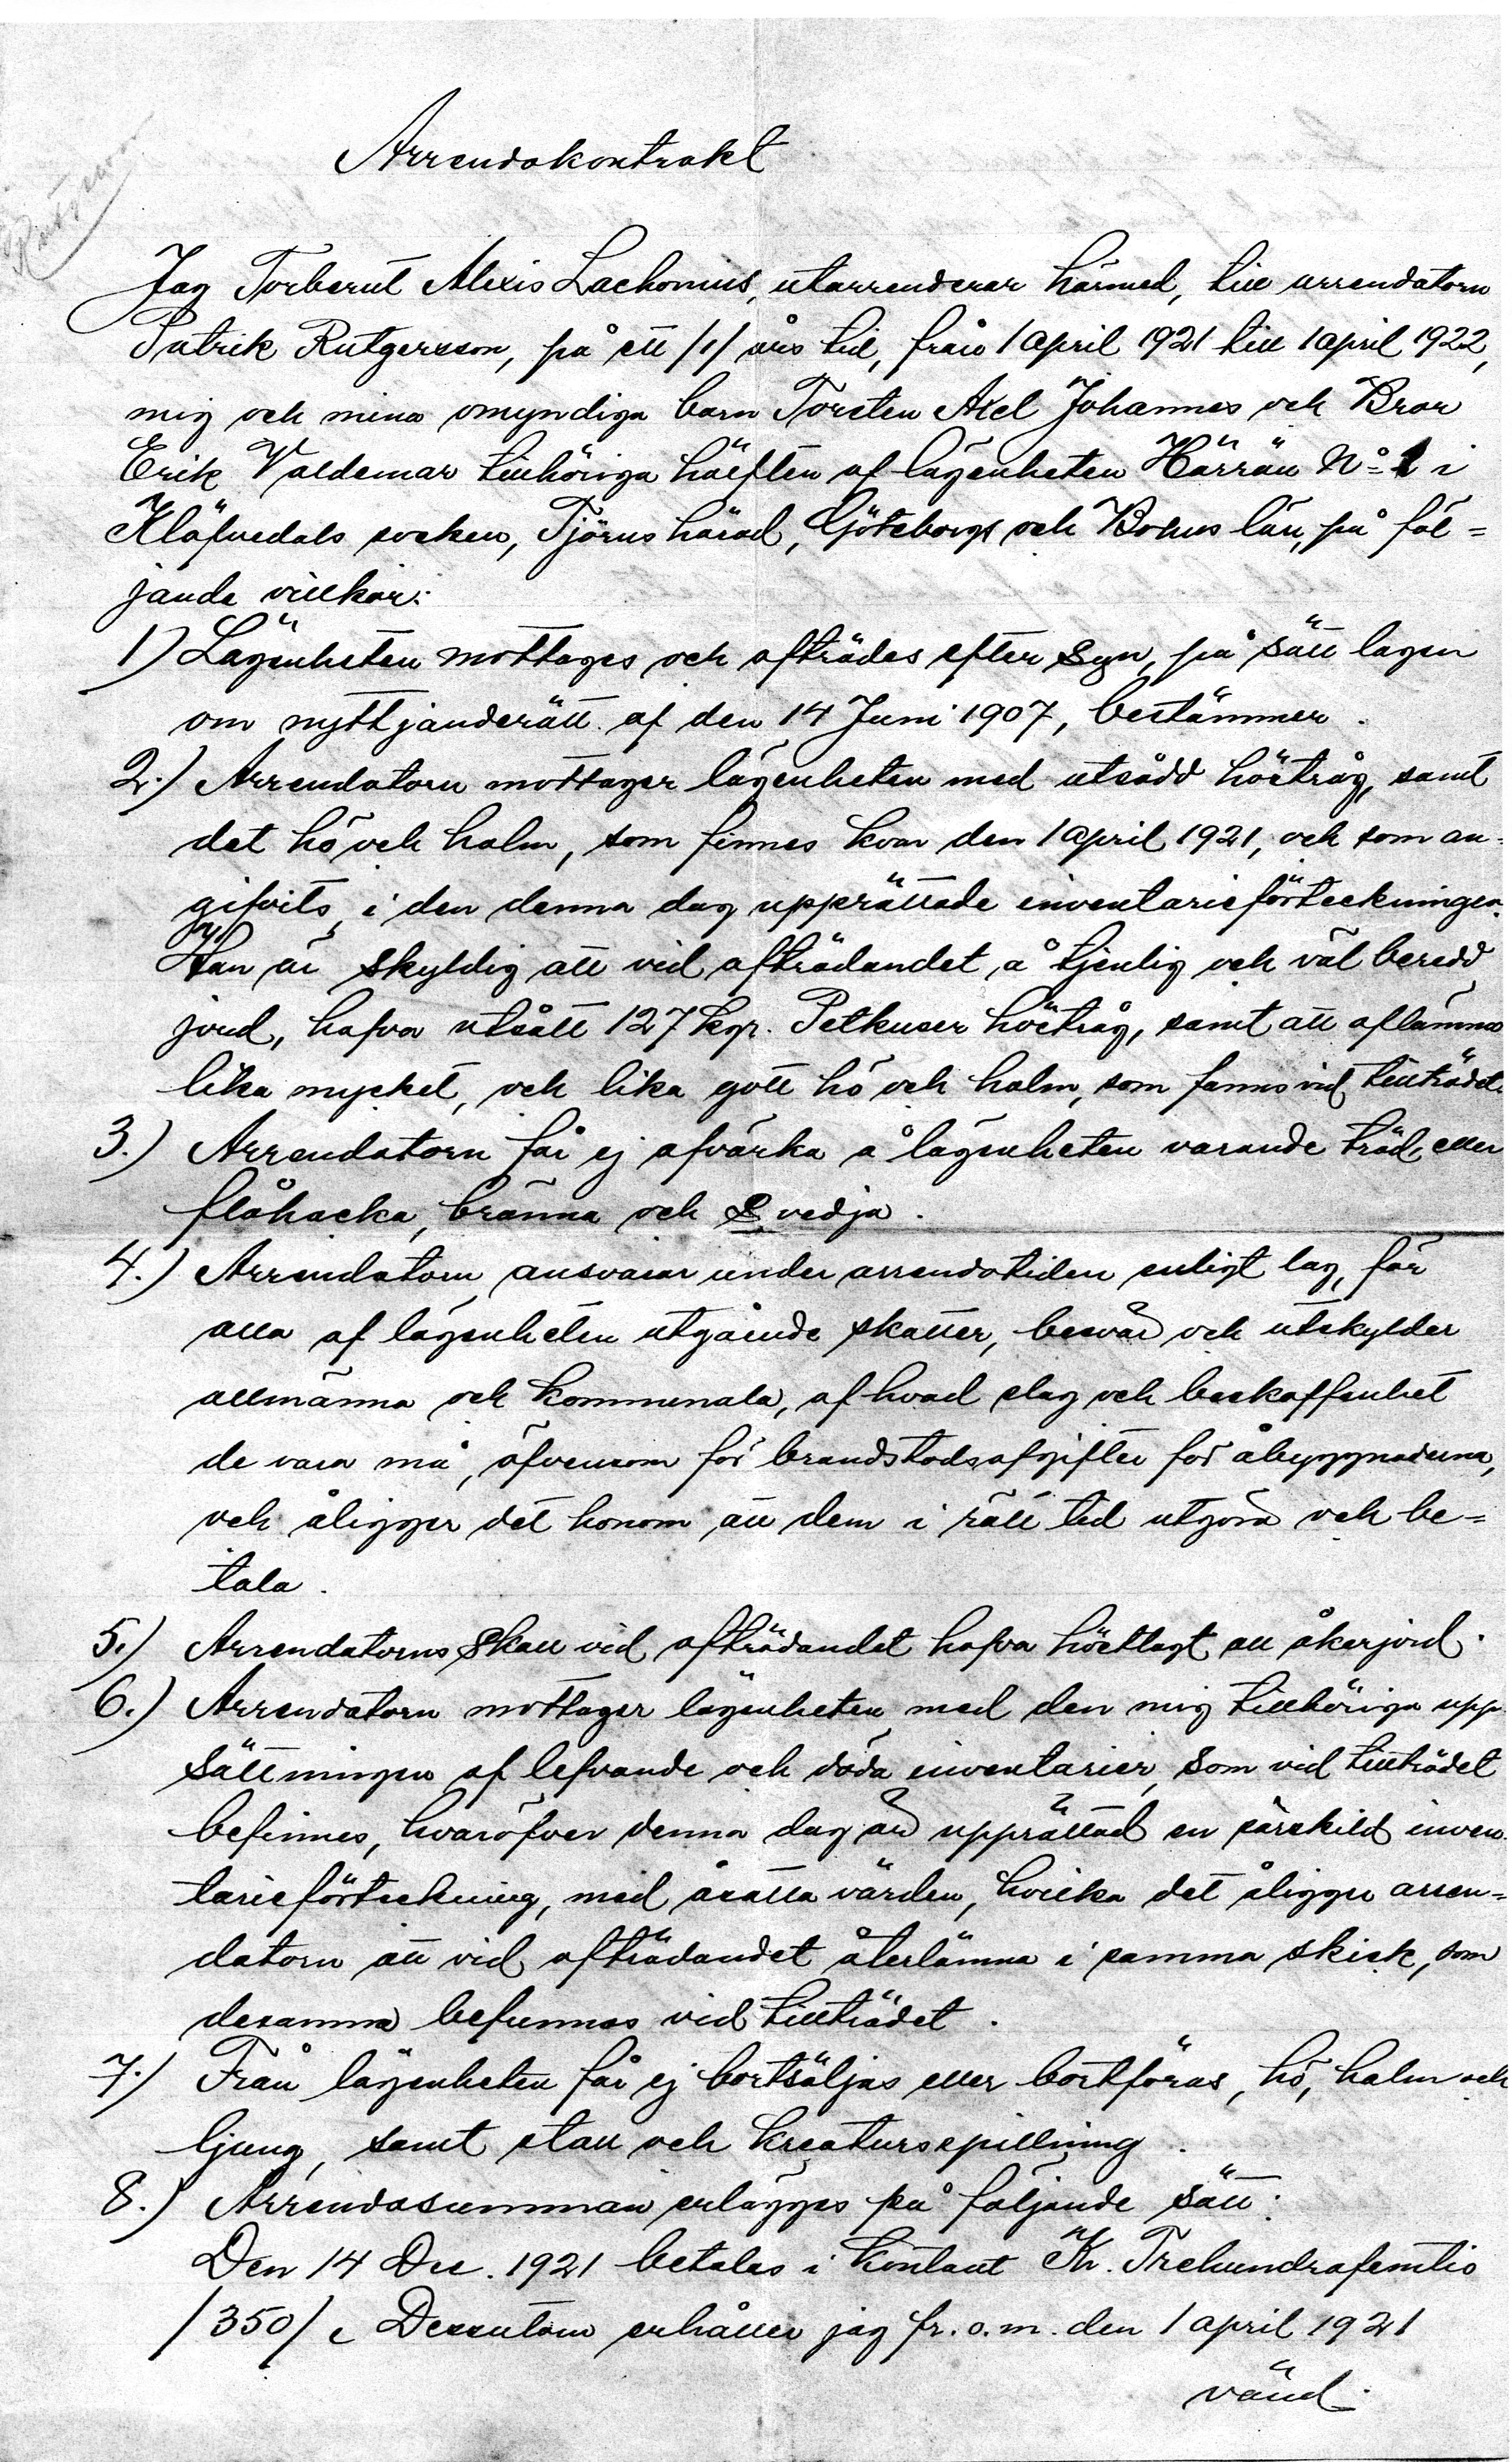 Arrendekontrakt
Jag Torberut Alexis Lachonius, utarrenderar härmed, till arrendatorn
Patrik Rutgersson, på ett /1/ års tid, från 1 april 1921 till 1 april 1922,
mig och mina omyndiga barn Torsten Axel Johannes och Bror
Erik Valdemar tillhöriga hälften af lägenheten Härrän No 1 i
Klöfvedals socken, Tjörns härad, Göteborgs och Bohus län, på föl=
jande villkor:
1) Lägenheten mottages och afträdes efter Syn, på sätt lagen
om nyttjanderätt af den 14 Juni 1907, bestämmer.
2.) Arrendatorn mottager lägenheten med utsådd höstråg, samt
det hö och halm, som finnes kvar den 1 april 1921, och som an=
gifvits, i den denna dag upprättade inventarieförteckningen.
Han är skyldig att vid afträdandet, å tjenlig och väl beredd
jord, hafva utsått 127 kgr. Petkuser höstråg, samt att aflämna
lika mycket, och lika gott hö och halm, som fanns vid tillträdet.
3.) Arrendatorn får ej afvärka å lägenheten varande träd, eller
flåhacka, bränna och svedja.
4.) Arrendatorn ansvarar under arrendetiden enligt lag, för
alla af lägenheten utgående skatter, besvär och utskylder
allmänna och kommunala, af hvad slag och beskaffenhet
de vara må, äfvensom för brandstodsafgifter för åbyggnaderna,
och åligger det honom att dem i rätt tid utgöra och be=
tala.
5.) Arrendatorns Skall vid afträdandet hafva höstlagt all åkerjord.
6.) Arrendatorn mottager lägenheten med den mig tillhöriga upp
sättningen af lefvande och döda inventarier, som vid tillträdet
befinnes, hvaröfver denna dag är upprättad en särskild inven
tarieförteckning, med åsatta värden, hvilka det åligger arren=
datorn att vid afträdandet återlämna i samma skick, som
desamma befunnos vid tillträdet.
7.) Från lägenheten får ej bortsäljas eller bortföras, hö, halm och
ljung, samt stall och kreatursspillning.
8.) Arrendesumman erlägges på följande sätt:
Den 14 Dec. 1921 betalas i kontant Kr. Trehundrafemtio
/350/. Dessutom erhåller jag fr. o. m. den 1 april 1921
vänd.